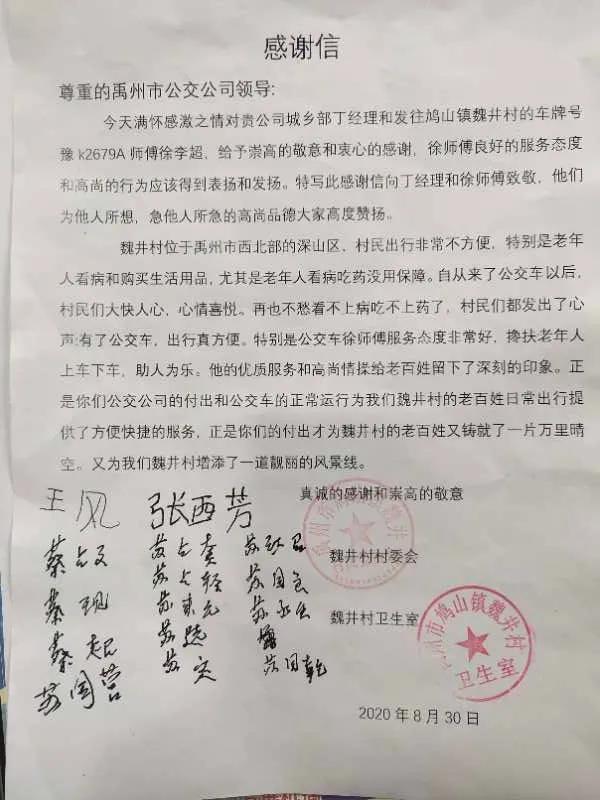 感谢信
尊重的禹州市公交公司领导:
今天满怀感激之情对贵公司城乡部丁经理和发往鸠山镇魏井村的车牌号
豫k2679A 师傅徐李超，给予崇高的敬意和衷心的感谢，徐师傅良好的服务态度
和高尚的行为应该得到表扬和发扬。特写此感谢信向丁经理和徐师傅致敬，他们
为他人所想，急他人所急的高尚品德大家高度赞扬。
魏井村位于禹州市西北部的深山区、村民出行非常不方便，特别是老年
人看病和购买生活用品，尤其是老年人看病吃药没用保障。自从来了公交车以后，
村民们大快人心、心情喜悦。再也不愁看不上病吃不上药了，村民们都发出了心
声:有了公交车，出行真方便。特别是公交车徐师傅服务态度非常好，搀扶老年人
上车下车，助人为乐。他的优质服务和高尚情操给老百姓留下了深刻的印象。正
是你们公交公司的付出和公交车的正常运行为我们魏井村的老百姓日常出行提
供了方便快捷的服务，正是你们的付出才为魏井村的老百姓又铸就了一片万里晴
空。又为我们魏井村增添了一道靓丽的风景线。
真诚的感谢和崇高的敬意
王风 张西芳
魏井村村委会
魏井村卫生室
州市鸠山镇魏井村
卫生室
苏国营
2020年8月30日